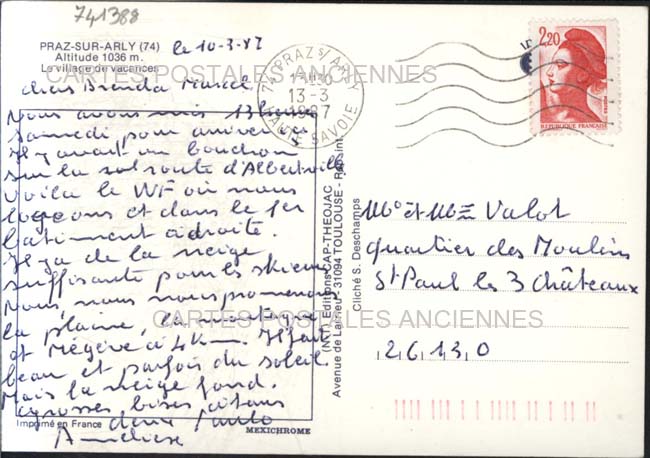 741388
PRAZ-SUR-ARLY (74)
Altitude 1036 m.
Le village de vacances
le 10-3-87
chers Brenda Marcel
Nous avons mis 13 heures
samedi pour arriver
Il y avait un bouchon
sur la route d'Albertville
voila le WF où nous
logeons et dans le 1er
batiment à droite.
Il y a de la neige
suffisante pour les skieurs
Nous, nous nous promenons
la plaine, la montagne
et Mégève à 4 km. Il fait
beau et parfois du soleil.
Mais la neige fond.
grosses bises à tous
deux Paulo
Imprimé en France
MEXICHROME
74 PRAZ S/ ARLY
13-3
1987
HAUTE SAVOIE
2,20
REPUBLIQUE FRANÇAISE
(NV) Editions CAP-THEOJAC
Avenue de Larrieu - 31094 TOULOUSE
Cliché S. Deschamps
Mr et Mme Valot
quartier des Moulins
St Paul les 3 Châteaux
26130
CARTES POSTALES ANCIENNES
CARTES POSTALES ANCIENNES